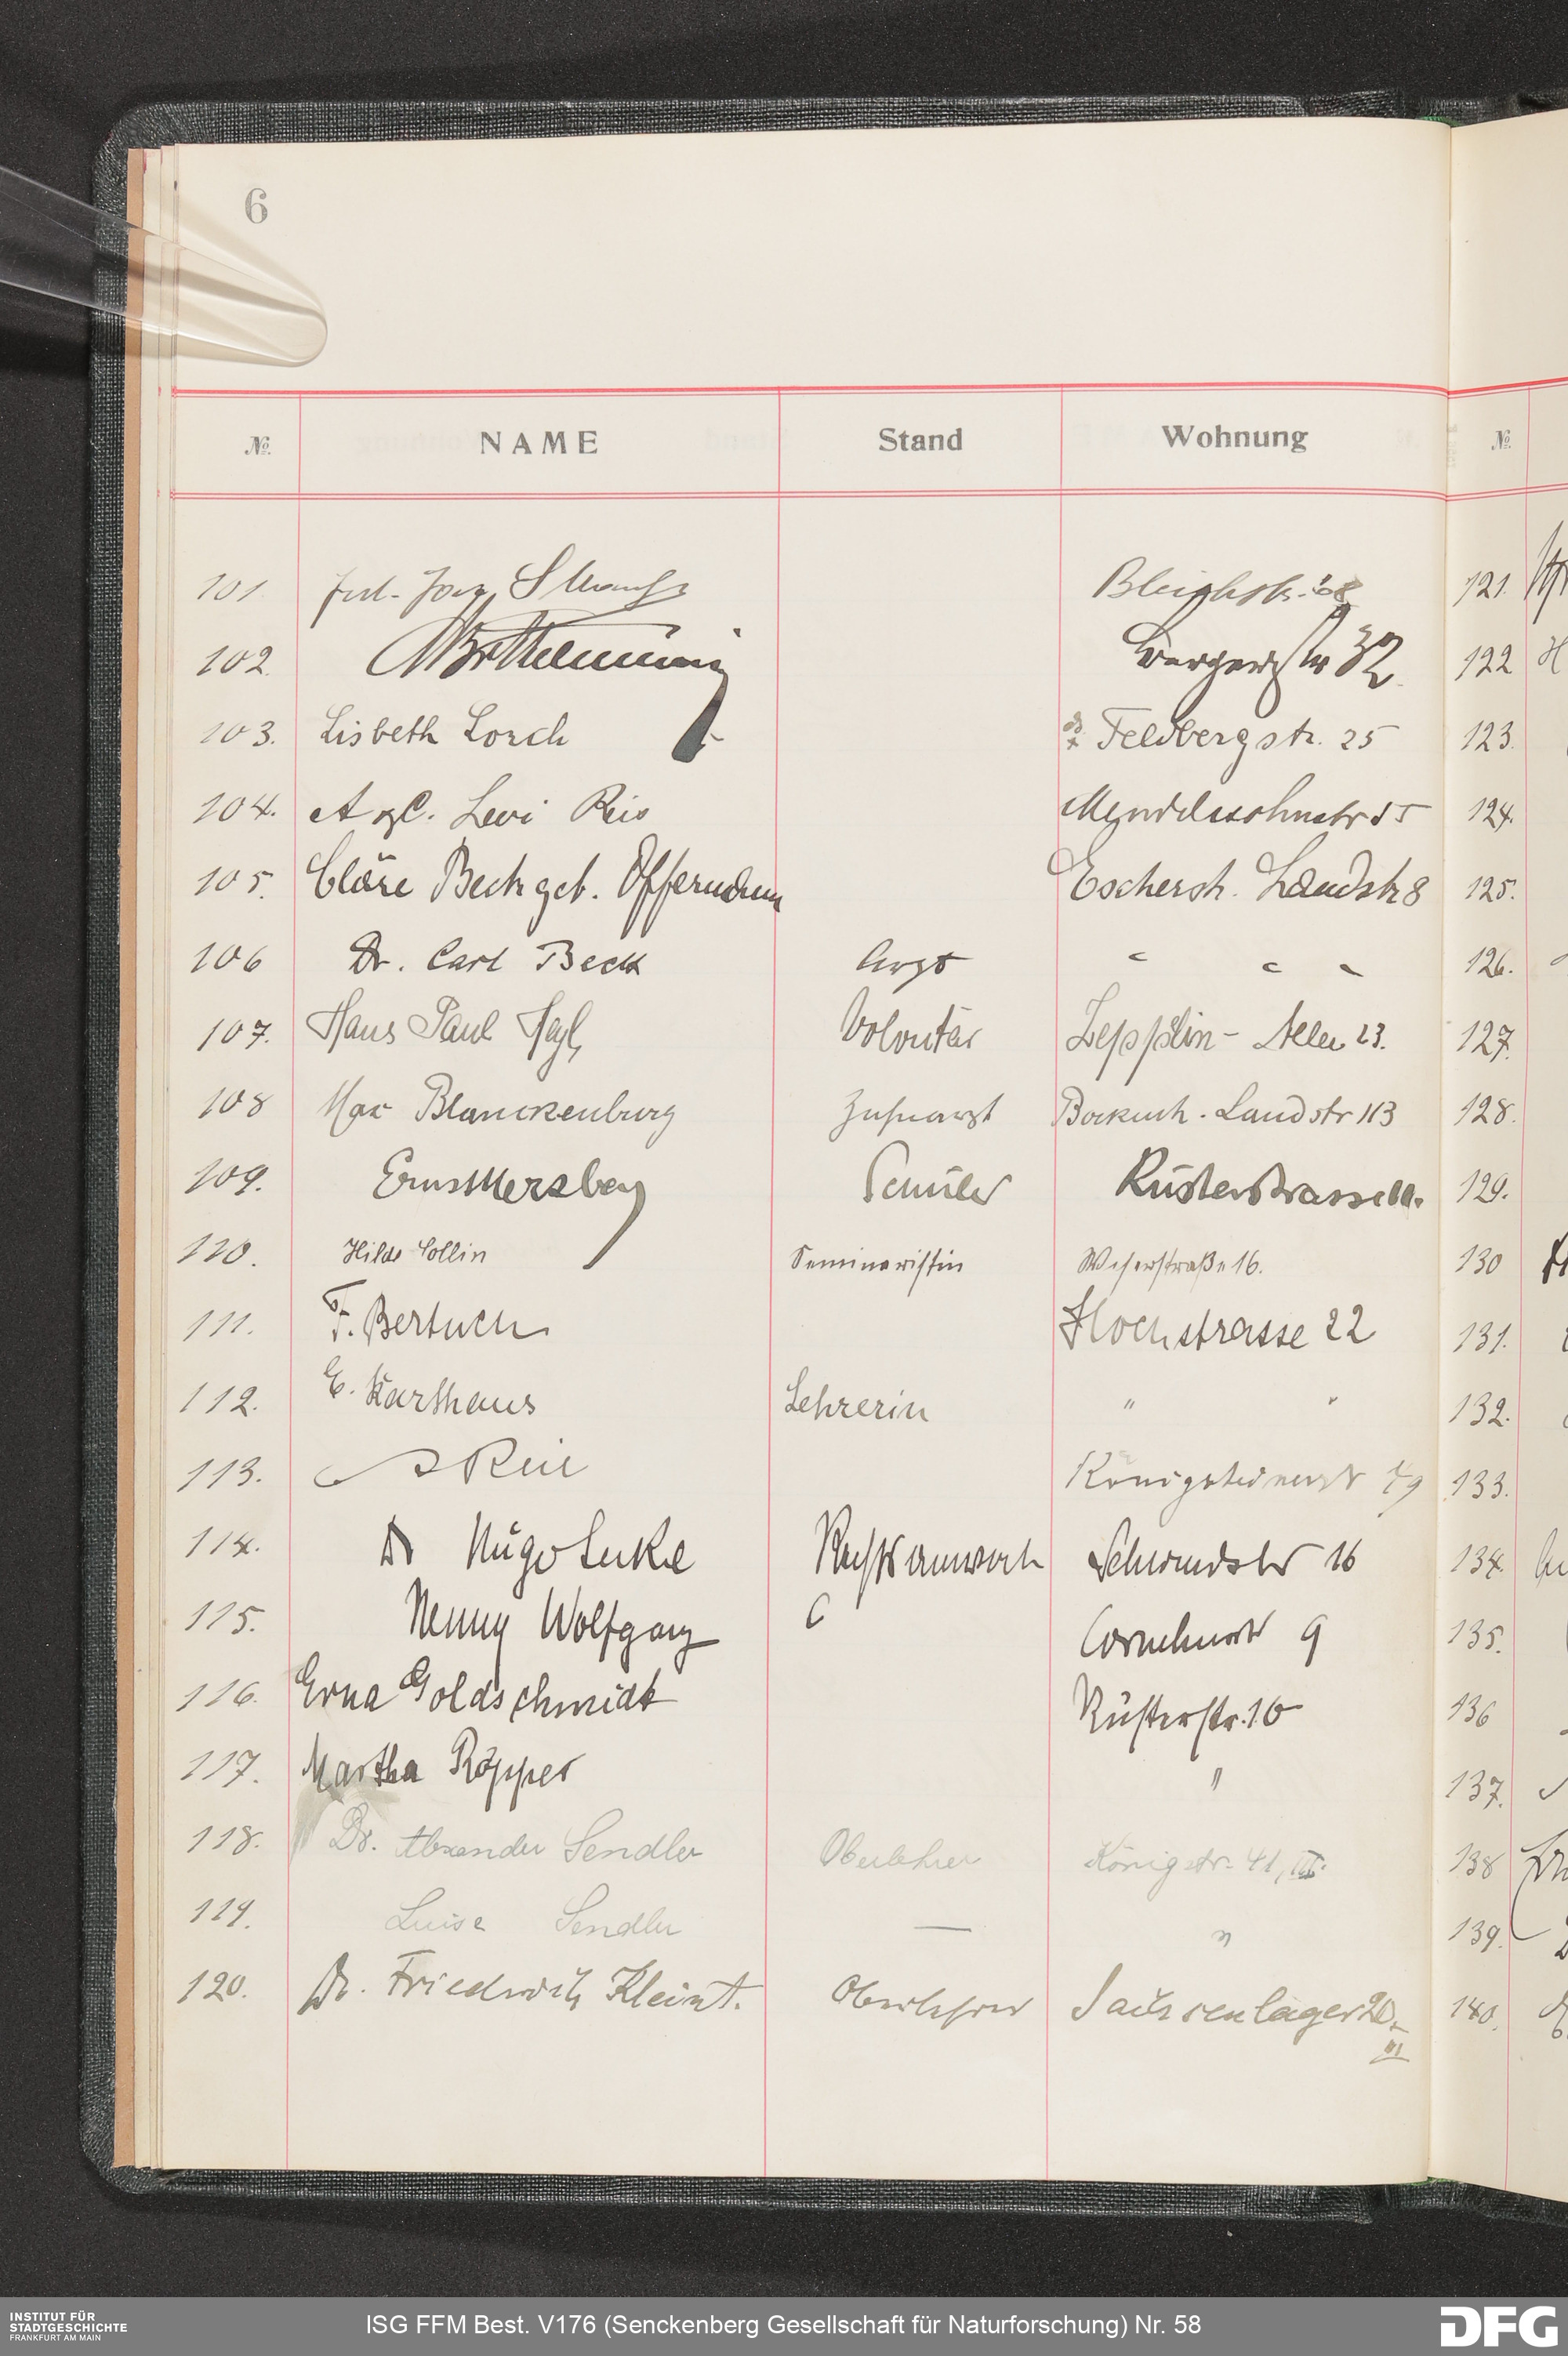 6
№ NAME Stand Wohnung №
101 Strauss Bleichstr. 68 121.
102. 32 122
103. Lisbeth Lorch Feldbergstr. 25 123.
104. Levi Reis Mendelssohnstr 124.
105. Cläre Beck geb. Eschersh. Landstr 8 125.
106 Dr. Carl Beck Arzt " " " 126.
107. Hans Paul Volontär Zeppelin-Allee 23. 127.
108 Max Blanckenburg Zahnarzt Bockenh. Landstr 113 128.
109. Ernst Merzbach Schüler Rüsterstrasse 129.
110. Hilde Collin Seminaristin Weserstraße 16. 130
111. F. Bertuch Hochstrasse 22 131.
112. E. Karthaus Lehrerin " " 132.
113. Königsteinerstr 133.
114. Dr Hugo Rechtsanwalt Schwindstr 16 134.
115. Wolfgang Corneliusstr 9 135.
116. Erna Goldschmidt Rüsterstr. 10 136
117. Martha Röpper " 137.
118. Dr. Alexander Sendler Oberlehrer Königstr. 41, III. 138
119. Luise Sendler — " 139.
120. Dr. Friedrich Kleint. Oberlehrer Sachsenlager 20. 140.
III
INSTITUT FÜR
STADTGESCHICHTE
FRANKFURT AM MAIN
ISG FFM Best. V176 (Senckenberg Gesellschaft für Naturforschung) Nr. 58
DFG